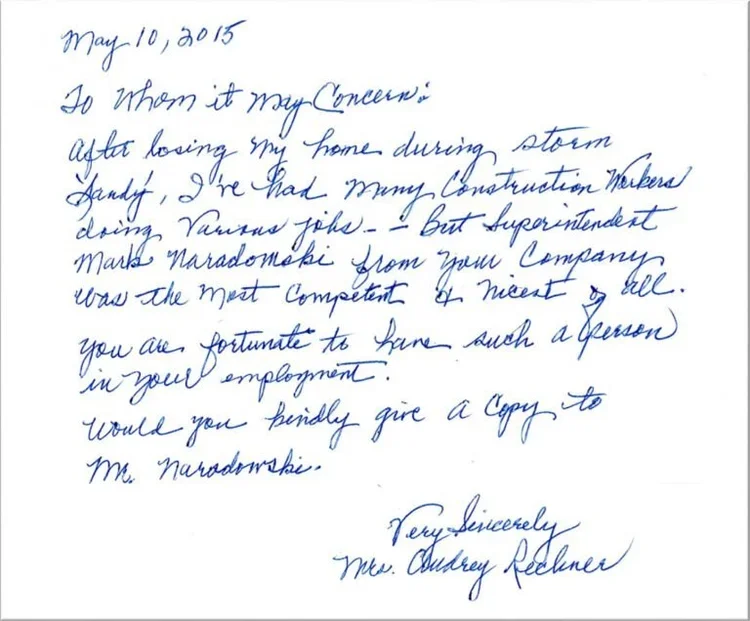 May 10, 2015
To Whom it May Concern:
After losing my home during storm
'Sandy', I've had many Construction Workers
doing various jobs - - But Superintendent
Mark Naradowski from your Company
was the most Competent & Nicest of all.
You are fortunate to have such a person
in your employment.
Would you kindly give a Copy to
Mr. Naradowski.
Very Sincerely
Mrs. Audrey Rechner